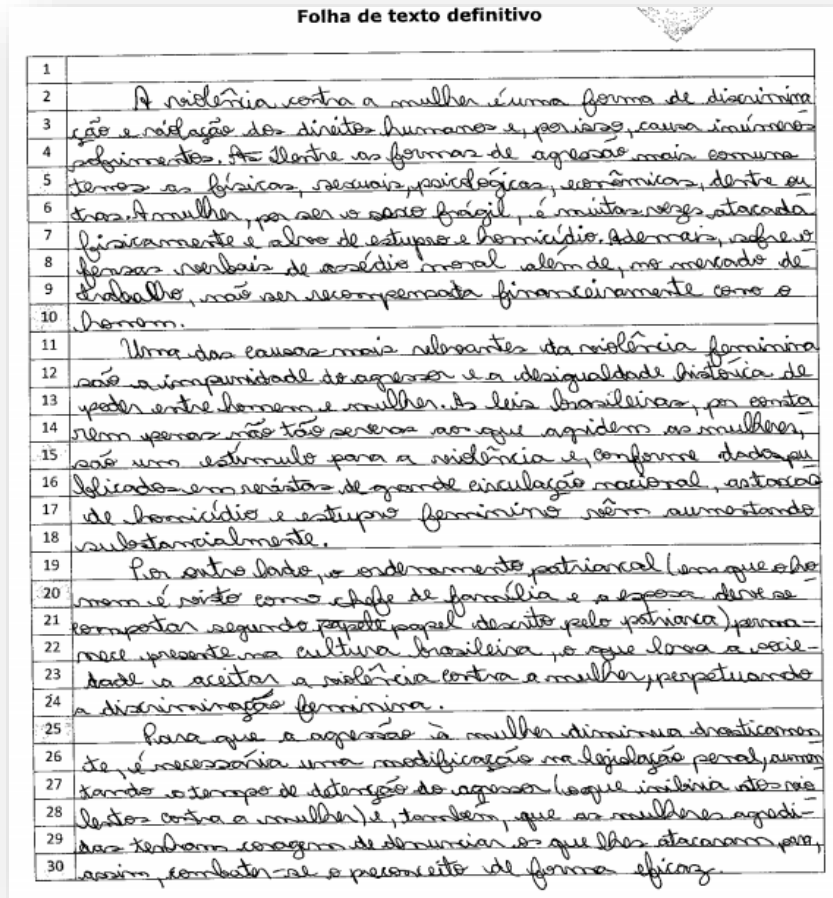 Folha de texto definitivo
1
2 A violência contra a mulher é uma forma de discrimina
3 ção e violação dos direitos humanos e, por isso, causa inúmeros
4 sofrimentos. As Dentre as formas de agressão mais comuns
5 temos as físicas, sexuais, psicológicas, econômicas, dentre ou
6 tras. A mulher, por ser o sexo frágil, é muitas vezes atacada
7 fisicamente e alvo de estupro e homicídio. Ademais, sofre o
8 fensas verbais de assédio moral além de, no mercado de
9 trabalho, não ser recompensada financeiramente como o
10 homem.
11 Uma das causas mais relevantes da violência feminina
12 são a impunidade do agressor e a desigualdade histórica de
13 poder entre homem e mulher. As leis brasileiras, por consta
14 rem penas não tão severas aos que agridem as mulheres,
15 são um estimulo para a violência e, conforme dados pu
16 blicados em revistas de grande circulação nacional, as taxas
17 de homicídio e estupro feminino vêm aumentando
18 substancialmente.
19 Por outro lado, o ordenamento patriarcal (em que o ho
20 mem é visto como chefe de família e a esposa deve se
21 comportar segundo papele papel descrito pelo patriarca) perma-
22 nece presente na cultura brasileira, o que leva a socie-
23 dade a aceitar a violência contra a mulher, perpetuando
24 a discriminação feminina.
25 Para que a agressão à mulher diminua drasticamen
26 te, é necessária uma modificação na legislação penal, aumen
27 tando o tempo de detenção do agressor (o que inibiria atos vio
28 lentos contra a mulher) e, também, que as mulheres agredi-
29 das tenham coragem de denunciar os que lhes atacaram para,
30 assim, combater-se o preconceito de forma eficaz.